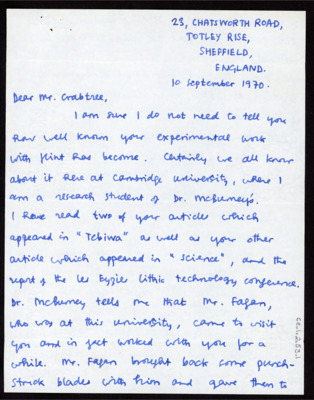 23, CHATSWORTH ROAD,
TOTLEY RISE,
SHEFFIELD,
ENGLAND.
10 September 1970.
Dear Mr. Crabtree,
I am sure I do not need to tell you
how well known your experimental work
with flint has become. Certainly we all know
about it here at Cambridge University, where I
am a research student of Dr. McBurney's.
I have read two of your articles which
appeared in "Tebiwa" as well as your other
article which appeared in "Science", and the
report of the Les Eyzies lithic technology conference.
Dr. McBurney tells me that Mr. Fagan,
who was at this university, came to visit
you and in fact worked with you for a
while. Mr. Fagan brought back some punch-
struck blades with him and gave them to